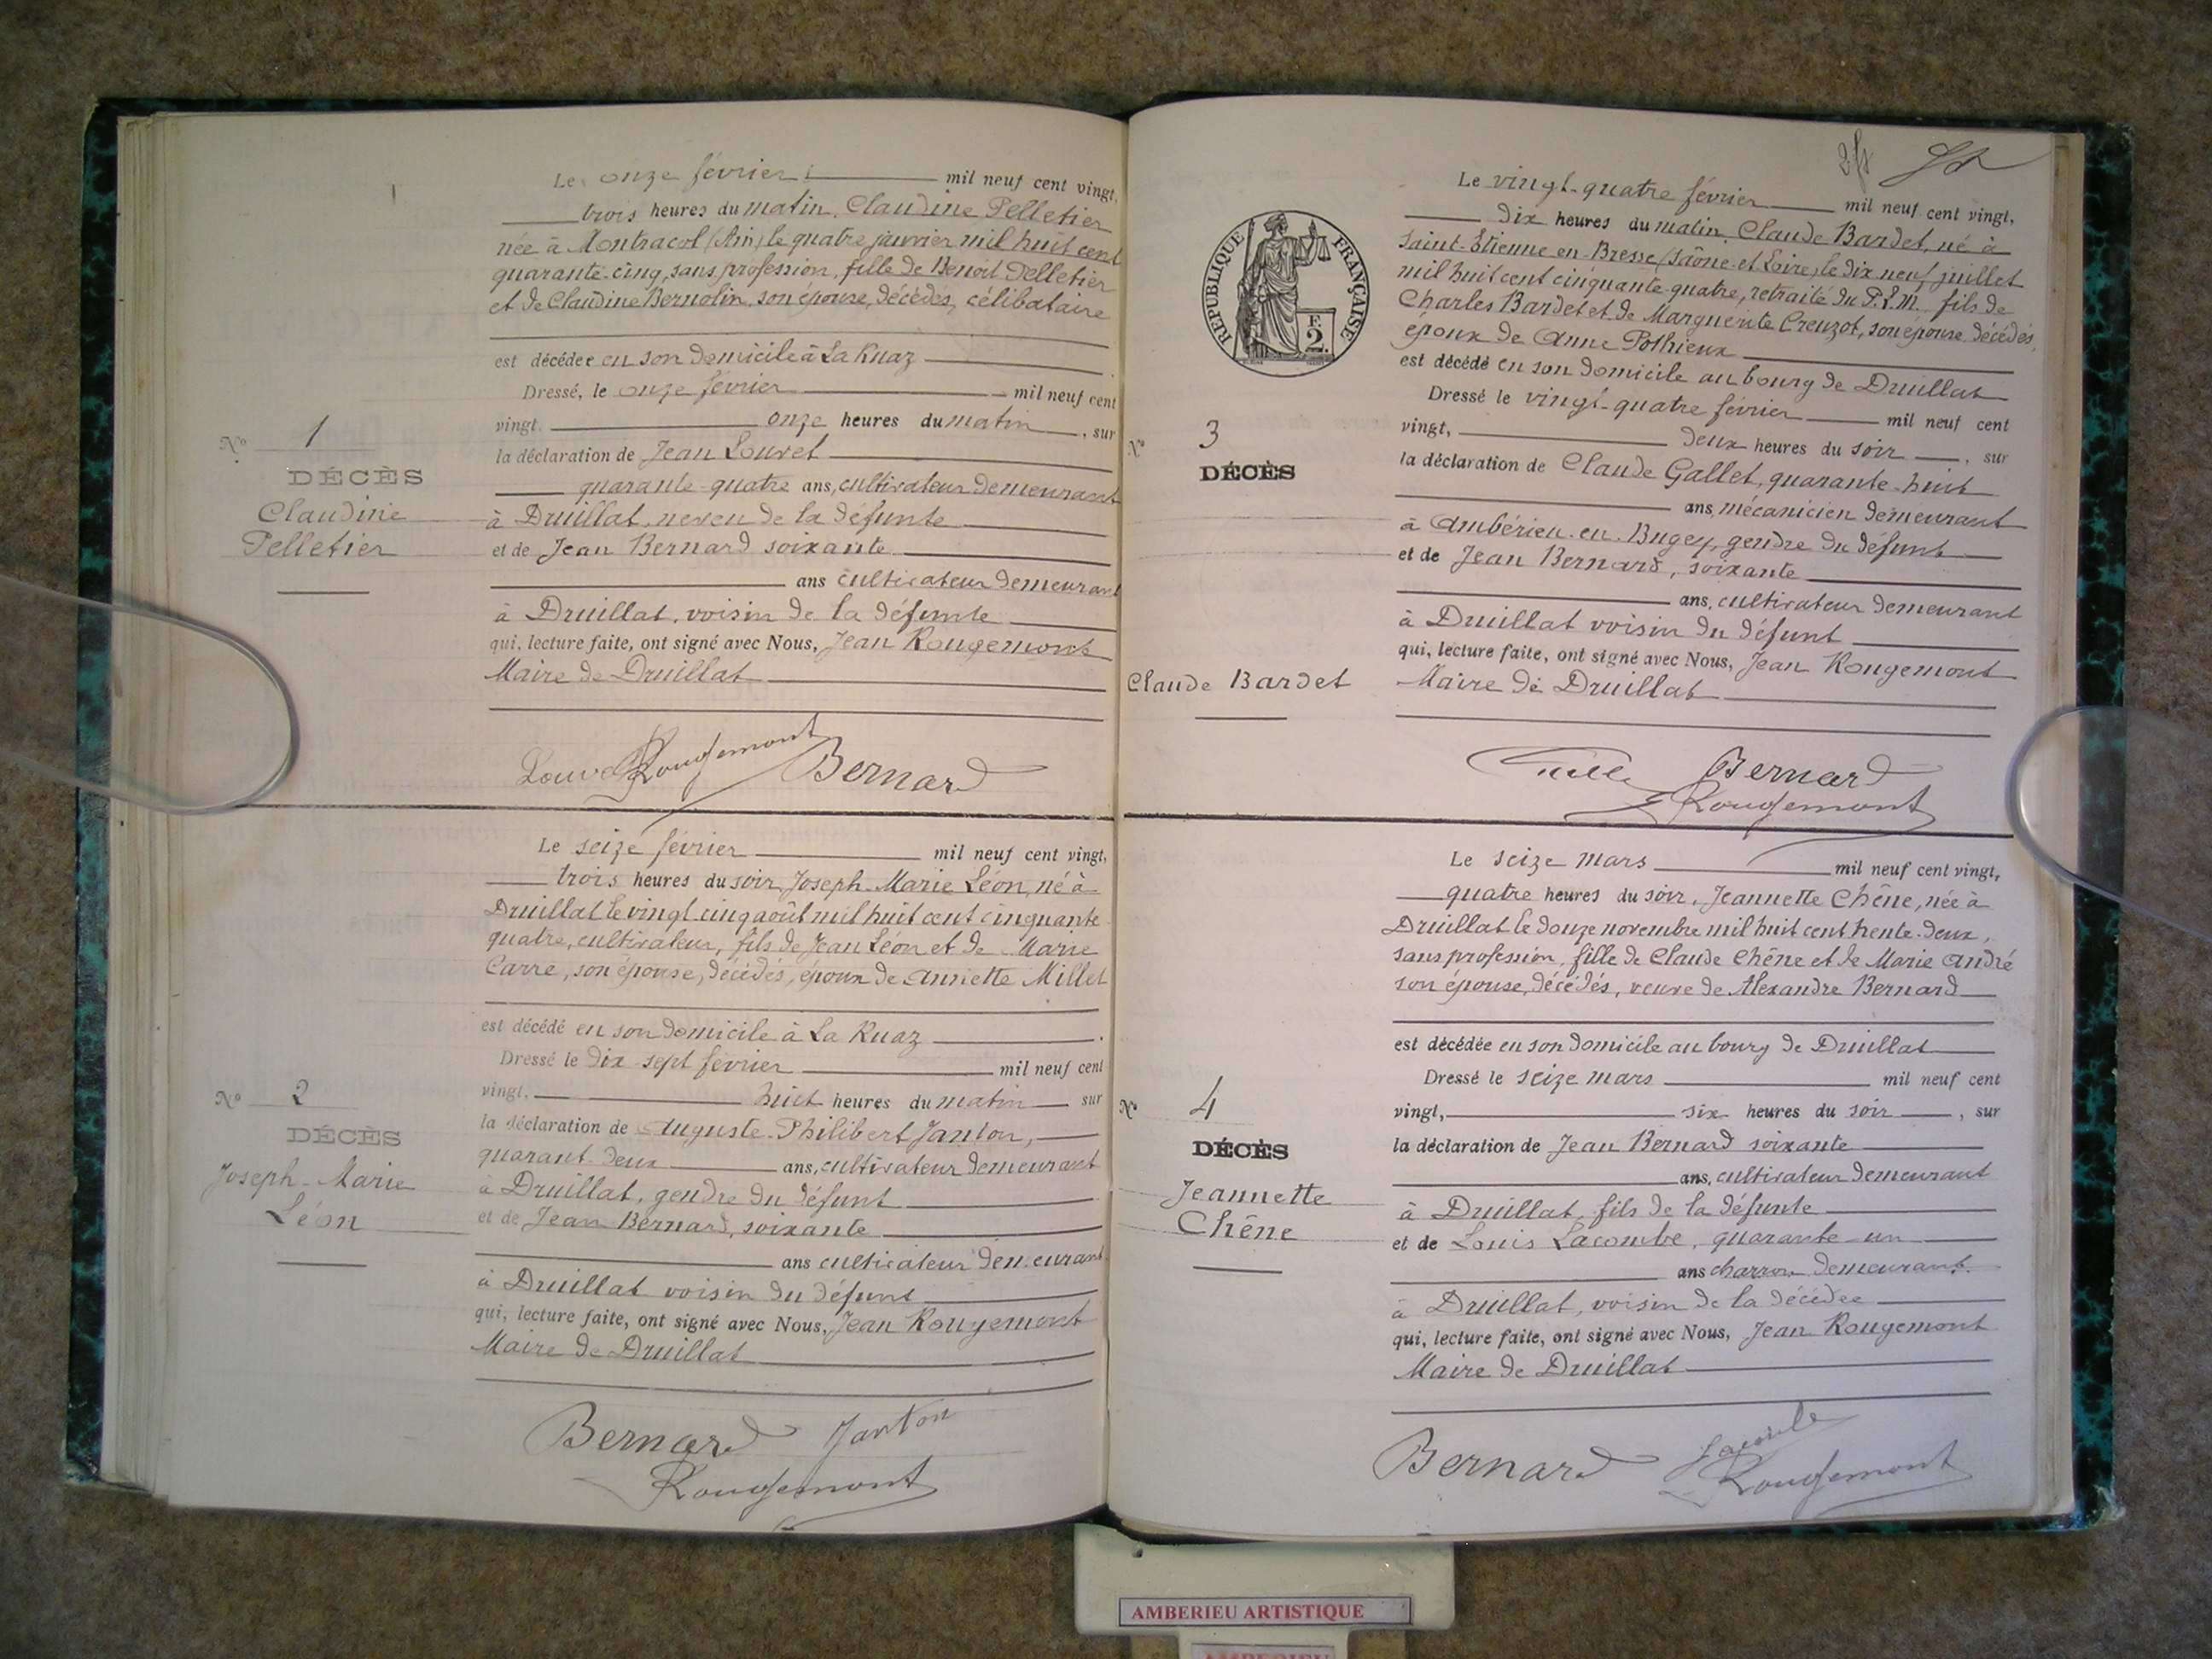 Le onze février mil neuf cent vingt,
trois heures du matin, Claudine Pelletier
née à Montracol (Ain) le quatre janvier mil huit cent
quarante-cinq, sans profession, fille de Benoit Pelletier
et de Claudine Bernolin, son épouse, décédés, célibataire
est décédée en son domicile à La Ruaz
Dressé, le onze février mil neuf cent
vingt, onze heures du matin, sur
la déclaration de Jean Louvet
quarante-quatre ans, cultivateur demeurant
à Druillat, neveu de la défunte
et de Jean Bernard soixante
ans cultivateur demeurant
à Druillat, voisin de la défunte
qui, lecture faite, ont signé avec Nous, Jean Rougemont
Maire de Druillat
No 1
DÉCÈS
Claudine
Pelletier
Louvet Rougemont Bernard
Le seize février mil neuf cent vingt,
trois heures du soir, Joseph-Marie Léon, né à
Druillat le vingt-cinq août mil huit cent cinquante
quatre, cultivateur, fils de Jean Léon et de Marie
Carre, son épouse, décédés, époux de Annette Millet
est décédé en son domicile à La Ruaz
Dressé le dix-sept février mil neuf cent
vingt, huit heures du matin sur
la déclaration de Auguste-Philibert Janton,
quarant-deux ans, cultivateur demeurant
à Druillat, gendre du défunt
et de Jean Bernard, soixante
ans cultivateur demeurant
à Druillat voisin du défunt
qui, lecture faite, ont signé avec Nous, Jean Rougemont
Maire de Druillat
No 2
DÉCÈS
Joseph-Marie
Léon
Bernard Janton
Rougemont
RÉPUBLIQUE FRANÇAISE
F.
2.
Le vingt-quatre février mil neuf cent vingt,
dix heures du matin, Claude Bardet, né à
Saint-Etienne-en-Bresse (Saône-et-Loire) le dix-neuf juillet
mil huit cent cinquante-quatre, retraité du P.L.M. fils de
Charles Bardet et de Marguerite Creuzot, son épouse décédés,
époux de Anne Pothieux
est décédé en son domicile au bourg de Druillat
Dressé le vingt-quatre février mil neuf cent
vingt, deux heures du soir, sur
la déclaration de Claude Gallet, quarante-huit
ans, mécanicien demeurant
à Ambérieu-en-Bugey, gendre du défunt
et de Jean Bernard, soixante
ans, cultivateur demeurant
à Druillat voisin du défunt
qui, lecture faite, ont signé avec Nous, Jean Rougemont
Maire de Druillat
No 3
DÉCÈS
Claude Bardet
Bernard
Rougemont
Le seize mars mil neuf cent vingt,
quatre heures du soir, Jeannette Chêne, née à
Druillat le douze novembre mil huit cent trente-deux,
sans profession, fille de Claude Chêne et de Marie André
son épouse, décédés, veuve de Alexandre Bernard
est décédée en son domicile au bourg de Druillat
Dressé le seize mars mil neuf cent
vingt, six heures du soir, sur
la déclaration de Jean Bernard soixante
ans, cultivateur demeurant
à Druillat, fils de la défunte
et de Louis Lacombe, quarante-un
ans charron demeurant
à Druillat, voisin de la décédée
qui, lecture faite, ont signé avec Nous, Jean Rougemont
Maire de Druillat
No 4
DÉCÈS
Jeannette
Chêne
Bernard
Rougemont
AMBERIEU ARTISTIQUE
AMBERIEU